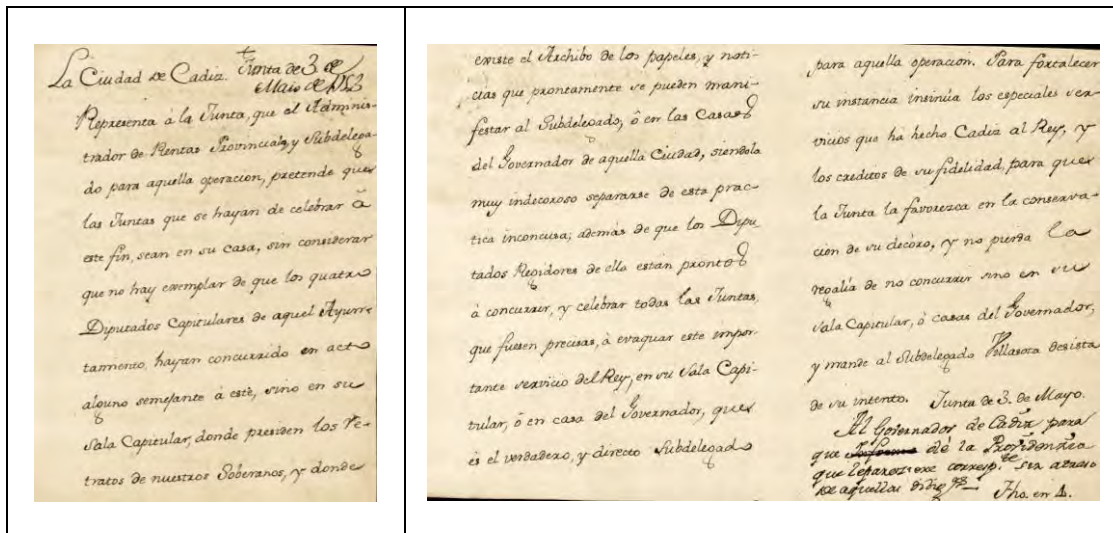 La Ciudad de Cadiz. Junta de 3 de
Maio de 1753
Representa á la Junta, que el Adminis-
trador de Rentas Provinciales, y Subdelega-
do para aquella operacion, pretende que
las Juntas que se hayan de celebrar á
este fin, sean en su casa, sin considerar
que no hay exemplar de que los quatro
Diputados Capitulares de aquel Ayun-
tamiento, hayan concurrido en acto
alguno semejante á este, sino en su
Sala Capitular, donde presiden los Re-
tratos de nuestros Soberanos, y donde
existe el Archibo de los papeles, y noti-
cias que prontamente se pueden mani-
festar al Subdelegado, ó en las Casas
del Governador de aquella Ciudad, siendola
muy indecoroso separarse de esta prac-
tica inconcusa; además de que los Dipu
tados Regidores de ella están prontos
á concurrir, y celebrar todas las Juntas,
que fuesen precisas, á evaquar este impor
tante servicio del Rey, en su Sala Capi-
tular, ó en casa del Governador, que
es el verdadero, y directo Subdelegado
para aquella operacion. Para fortalecer
su instancia insinúa los especiales ser-
vicios que ha hecho Cadiz al Rey, y
los creditos de su fidelidad, para que
la Junta la favorezca en la conserva-
cion de su decóro, y no pierda la
regalía de no concurrir sino en su
Sala Capitular, ó casas del Governador,
y mande al Subdelegado Villasota desista
de su intento. Junta de 3. de Mayo.
Al Governador de Cadiz para
que Informe dé la Providencia
que le pareciere corresp.te sin atraso
de aquellas dilig.as Fho. en 4.